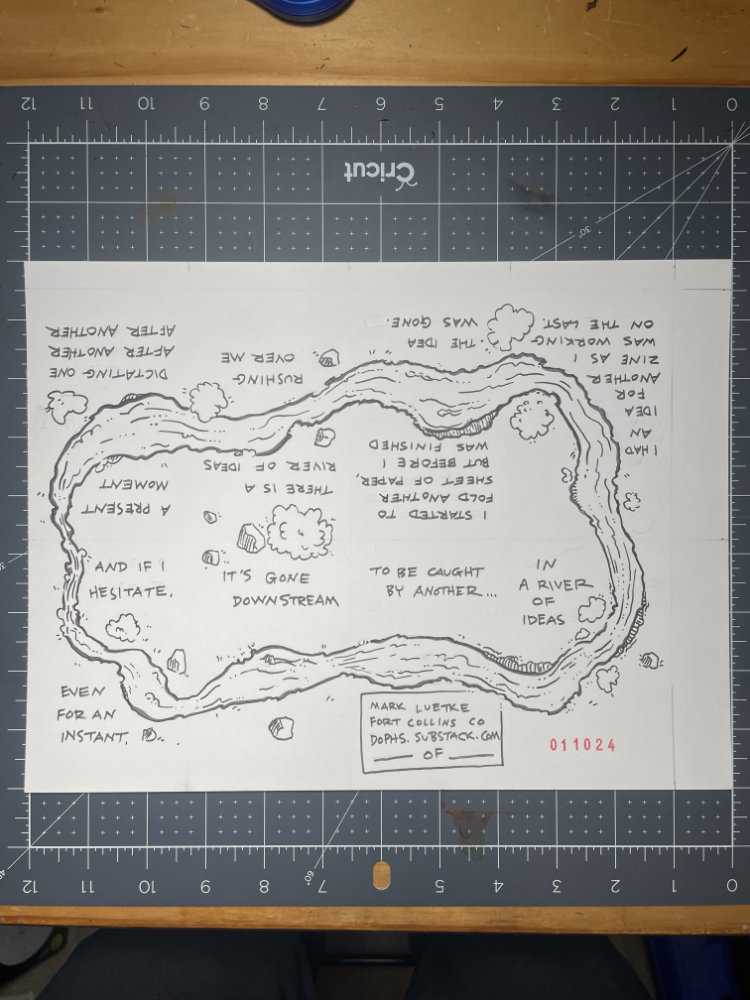 12 11 10 9 8 7 6 5 4 3 2 1 0
Cricut
I HAD
AN
IDEA
FOR
ANOTHER
ZINE AS I
WAS WORKING
ON THE LAST.
I STARTED TO
FOLD ANOTHER
SHEET OF PAPER,
BUT BEFORE I
WAS FINISHED
. THE IDEA
WAS GONE.
THERE IS A
RIVER OF IDEAS
RUSHING
OVER ME
A PRESENT
MOMENT
DICTATING ONE
AFTER ANOTHER
AFTER ANOTHER
AND IF I
HESITATE,
EVEN
FOR AN
INSTANT,
IT'S GONE
DOWNSTREAM
TO BE CAUGHT
BY ANOTHER...
IN
A RIVER
OF
IDEAS
MARK LUETKE
FORT COLLINS CO
DOPHS.SUBSTACK.COM
___ OF ___
011024
12 11 10 9 8 7 6 5 4 3 2 1 0
30°
60°